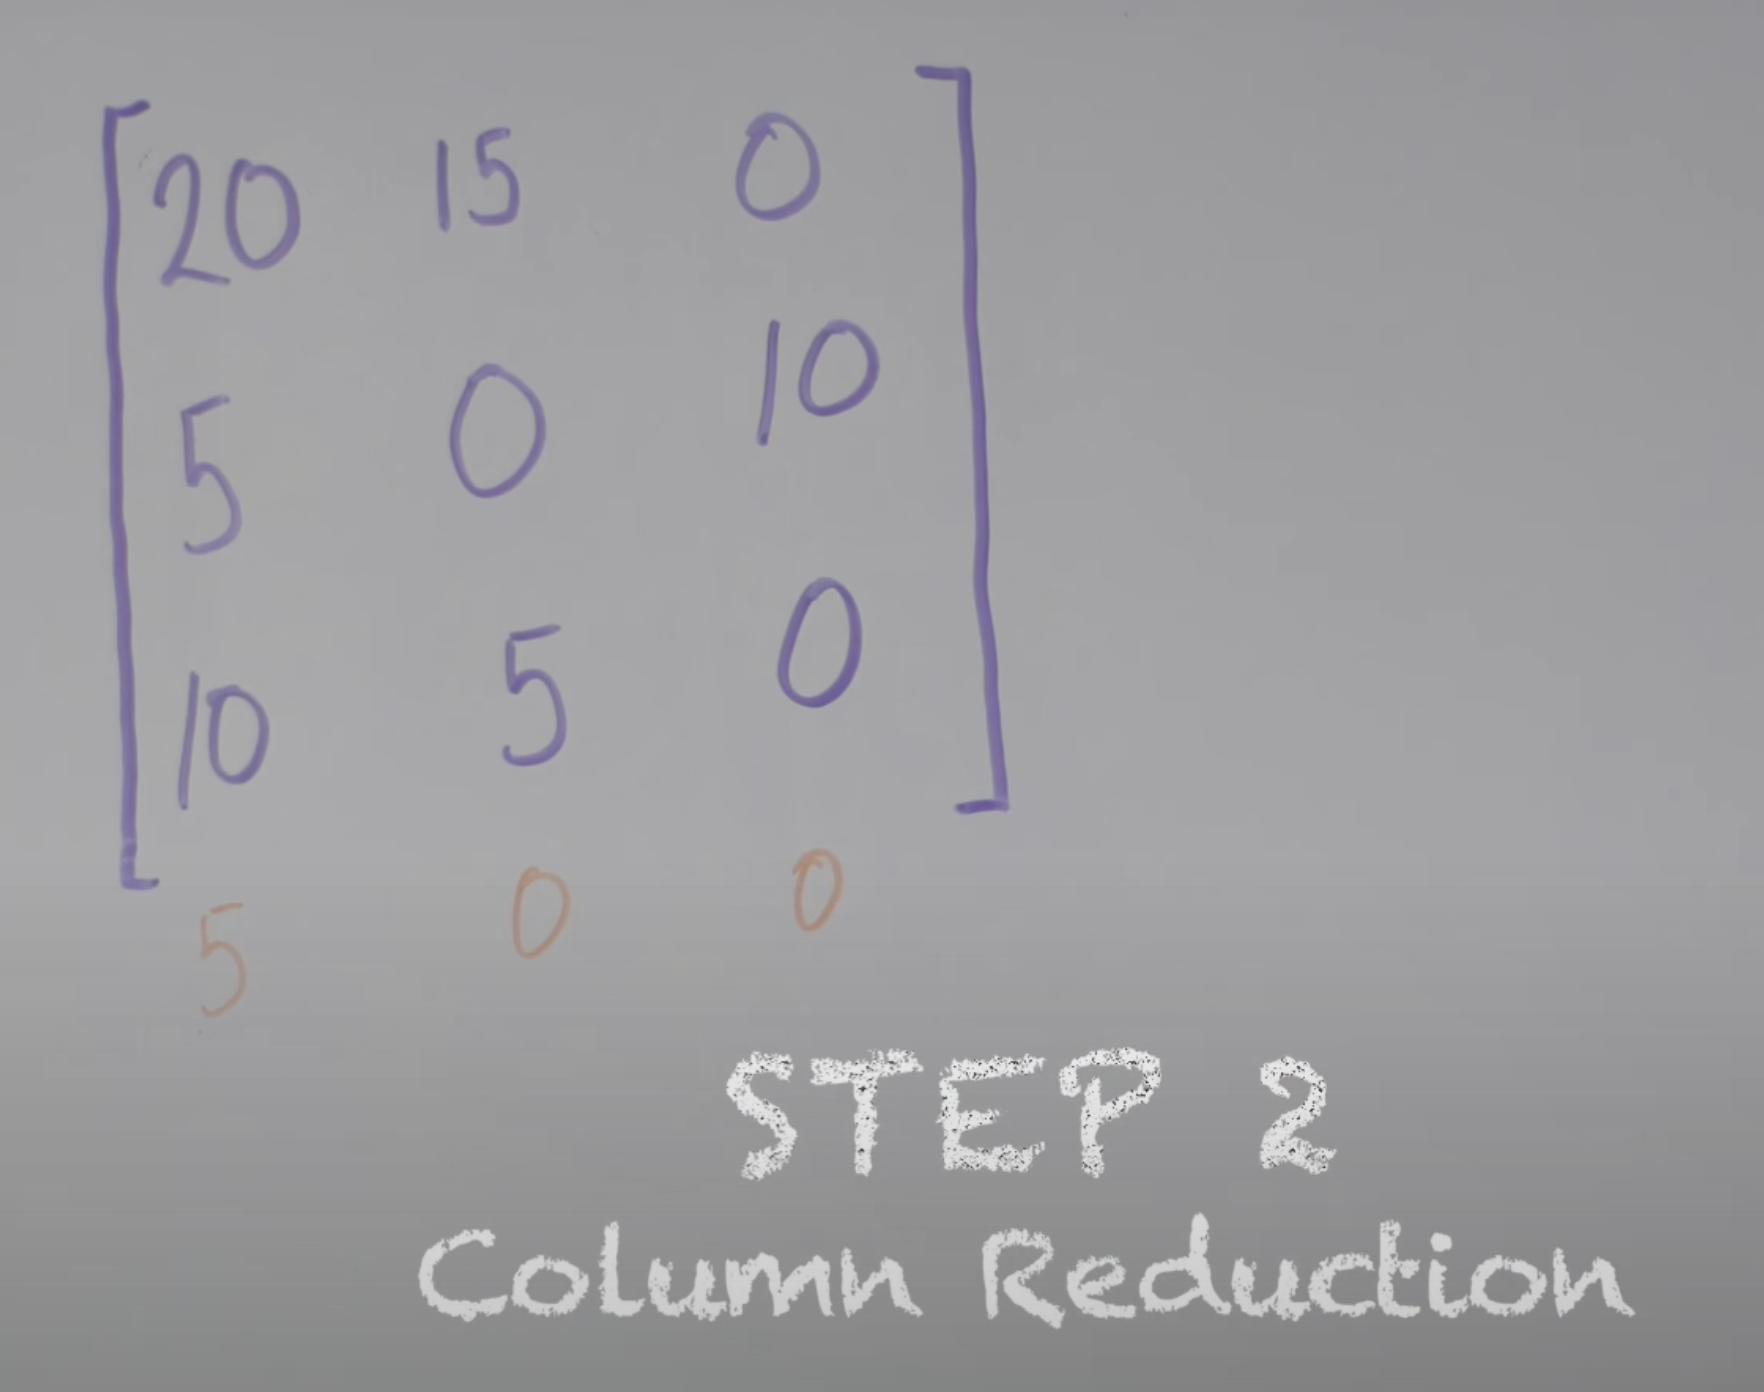 20 15 0
5 0 10
10 5 0
5 0 0
STEP 2
Column Reduction